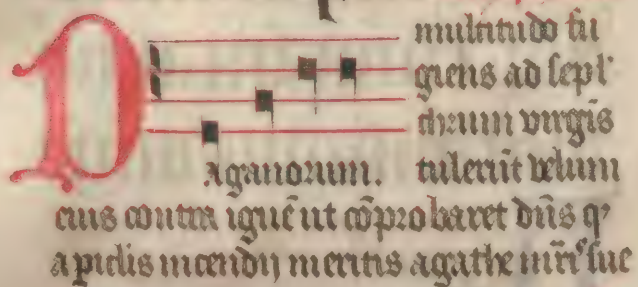 Paganorum. multitudo fu
giens ad sepl'
chrum virgīs
tulerūt velum
eius contra ignē ut cōprobaret dn̄s q'
a piclis incendij meritis agathe mr̄i sue